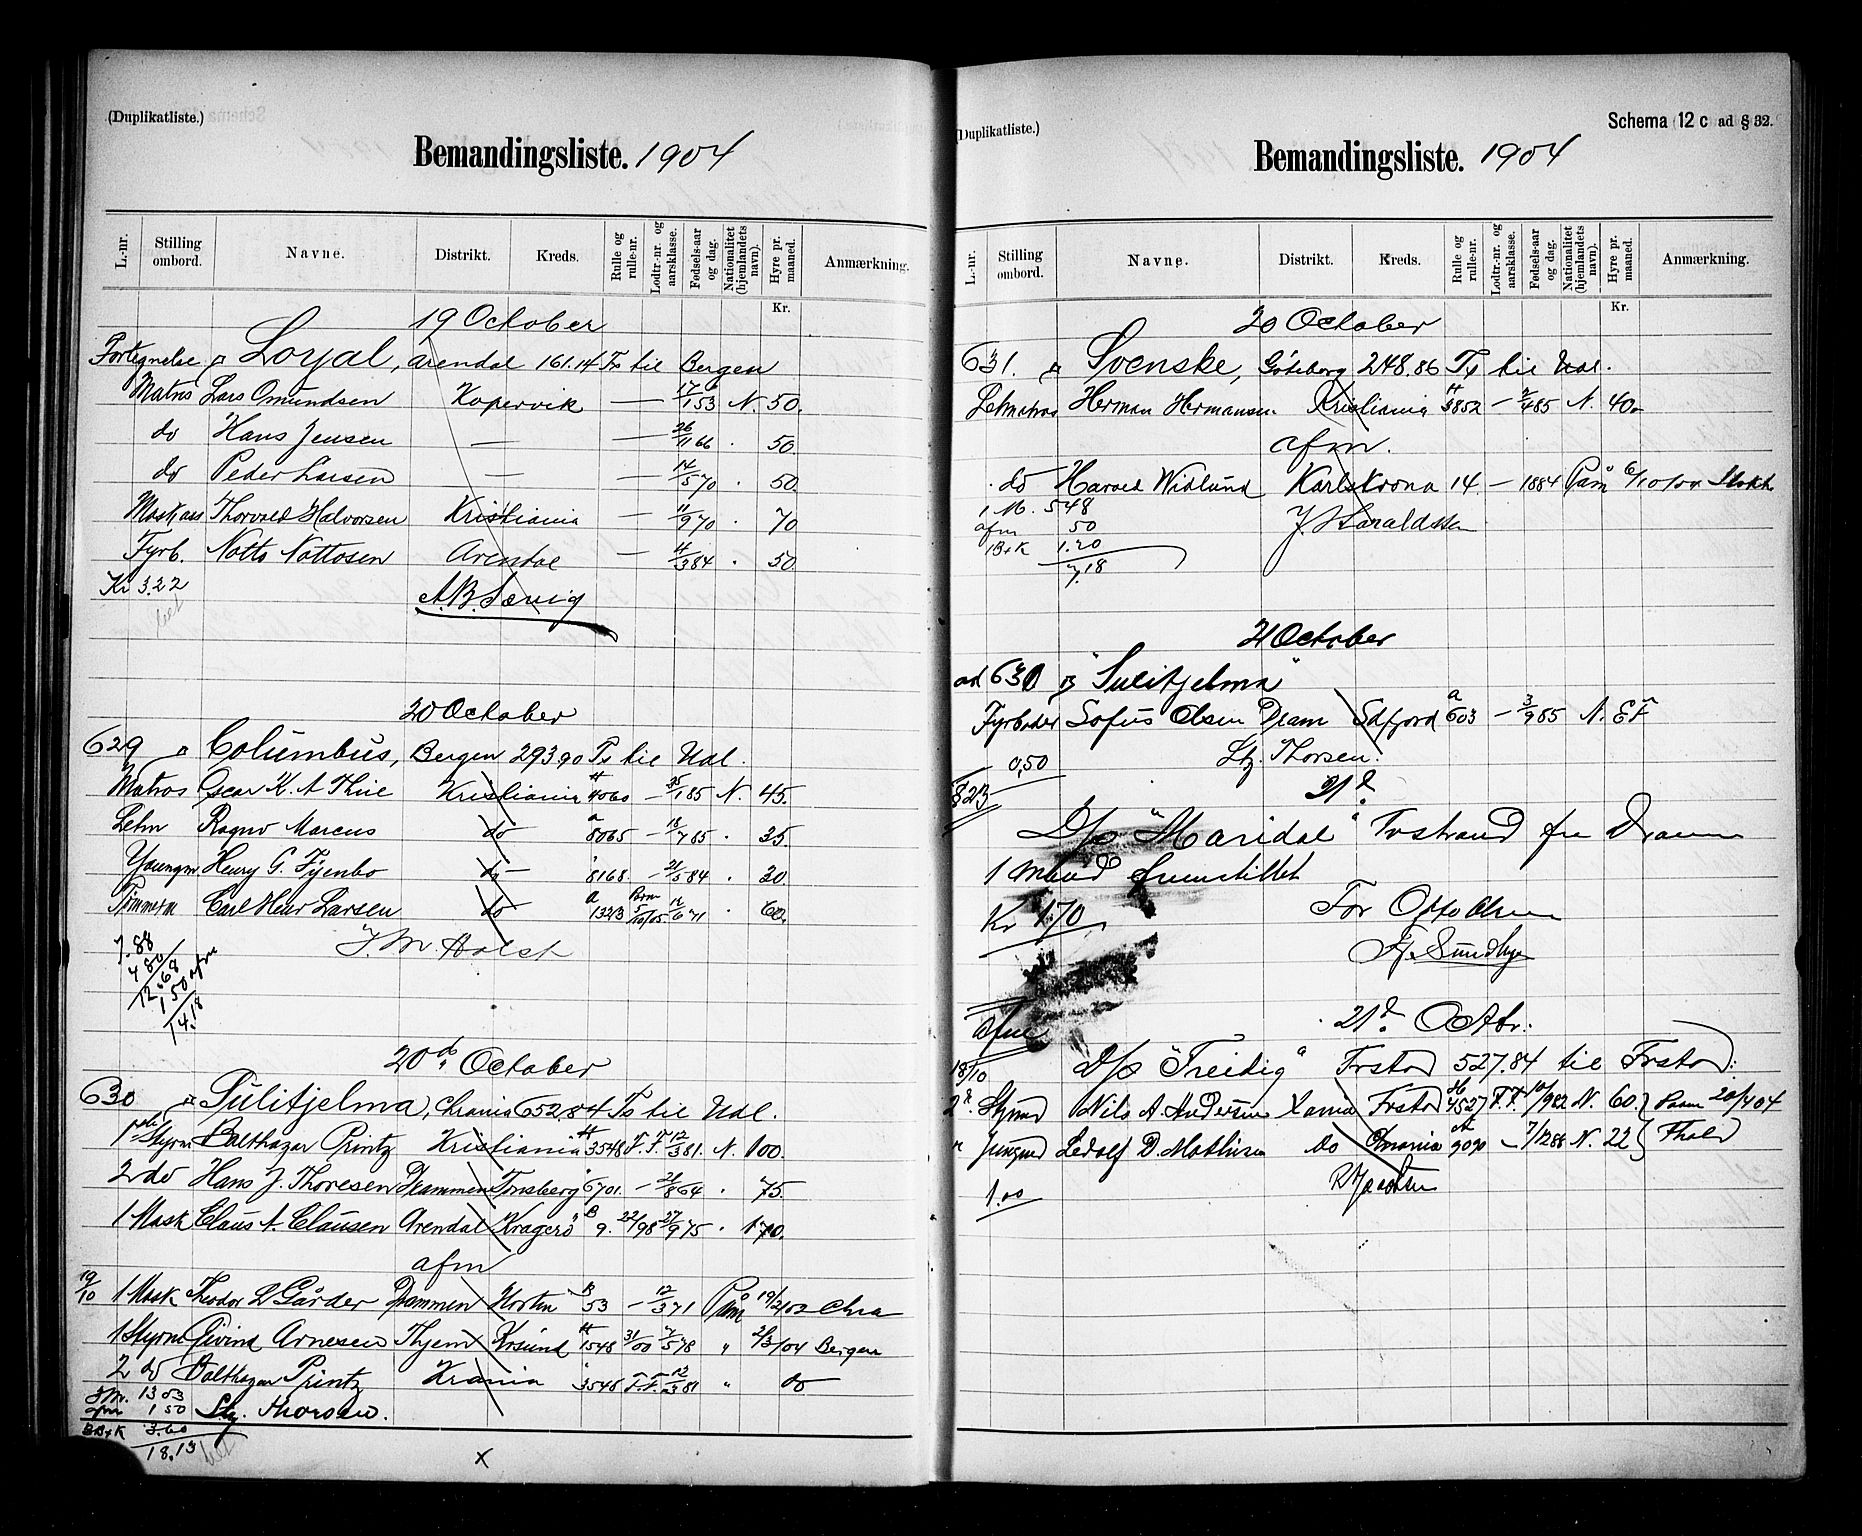 (Duplikatliste.)
Bemandingsliste. 1904
L.-nr. Stilling ombord. Navne. Distrikt. Kreds. Rulle og rulle-nr. Lodtr.-nr. og aarsklasse. Fødsels-aar og dag. Nationalitet (hjemlandets navn). Hyre pr. maaned. Anmærkning.
Kr.
19 October
Fortegnelse Loyal, Arendal 161.14 Ts til Bergen
Matros Lars Omundsen Kopervik — 17/1 53 N. 50.
do Hans Jensen — — 26/11 66 . 50
do Peder Larsen — — 14/5 70 . 50.
Maskass Thorvald Halvorsen Kristiania — 11/9 70 . 70
Fyrb. Notto Nottosen Arendal — 4/3 84 . 50.
Kr 3.22
20 October
629 Columbus, Bergen 293.90 Ts til Udl.
Matros Oscar K. A Thue Kristiania 4060 — 25/1 85 N. 45.
Letm Ragnv Marcus do a 8065 — 18/7 85 . 35.
Youngm Henry G. Fyenbo do 8168. — 21/5 84 . 30.
Tømmerm Carl Henr Larsen do a 1323 5/10/05 12/6 71 . 60.
J. M. Holst
7.88
4 80
12.68
1 50 afm
14.18
20d October
630 Sulitjelma, Chrania 652.84 Ts til Udl.
1ste Styrm Balthazar Printz Kristiania 3548 F.F. 12/3 81. N. 100.
2 do Hans J. Thoresen Drammen Tønsberg 6701. — 21/8 64 . 75.
1 Mask Claus A. Clausen Arendal Kragerø B 9. 22/98 27/9 75 . 170.
afm
19/10 1 Mask Theodor L Gårder Drammen Horten B 53 — 12/3 71 Påm 19/2/02 Chra
1 Styrm Eivind Arnesen Thjem Krsund 1548 31/00 7/5 78 " 2/3/04 Bergen
2 do Balthazar Printz Krania 3548 F.F. 12/3 81 " do
13 03
afm 1 50 Thorsen.
3.60
18.13
x
(Duplikatliste.)
Schema 12 c ad § 32.
Bemandingsliste. 1904
L.-nr. Stilling ombord. Navne. Distrikt. Kreds. Rulle og rulle-nr. Lodtr.-nr. og aarsklasse. Fødsels-aar og dag. Nationalitet (hjemlandets navn). Hyre pr. maaned. Anmærkning.
Kr.
20 October
631. Svenske, Göteborg 248.86 Ts til Udl.
Letmatros Herman Hermansen Kristiania 3852 — 4 85 N. 40.
afm.
do Harald Widlund Karlskrona 14. — 1884 Påm 6/10/04 Stokh.
1 M. 548
afm 50 J. Haraldssen
1 B+K 1.20
7.18
21 October
ad 630 "Sulitjelma"
Fyrbøder Sofus Olsen Dram Sdfjord a 603 — 3/9 85 N. EF
0,50 Thorsen.
§ 23 21d
D/s "Maridal" Frstrand fra Dramm
1 mand fremstillet
Kr 1.70 For Otto Olsen
Sundbye
21d Octbr.
afm
18/10 D/s "Freidig" Frstad 527.84 til Frstad:
2d Styrmd Nils A. Andersen Xania Frstad 4527 F.F. 10/9 82 N. 60. Paam 20/4 04
Jungmd Ledolf D. Mathisen do Chrania 9090 — 7/12 88 N. 22 Fhald
1.00